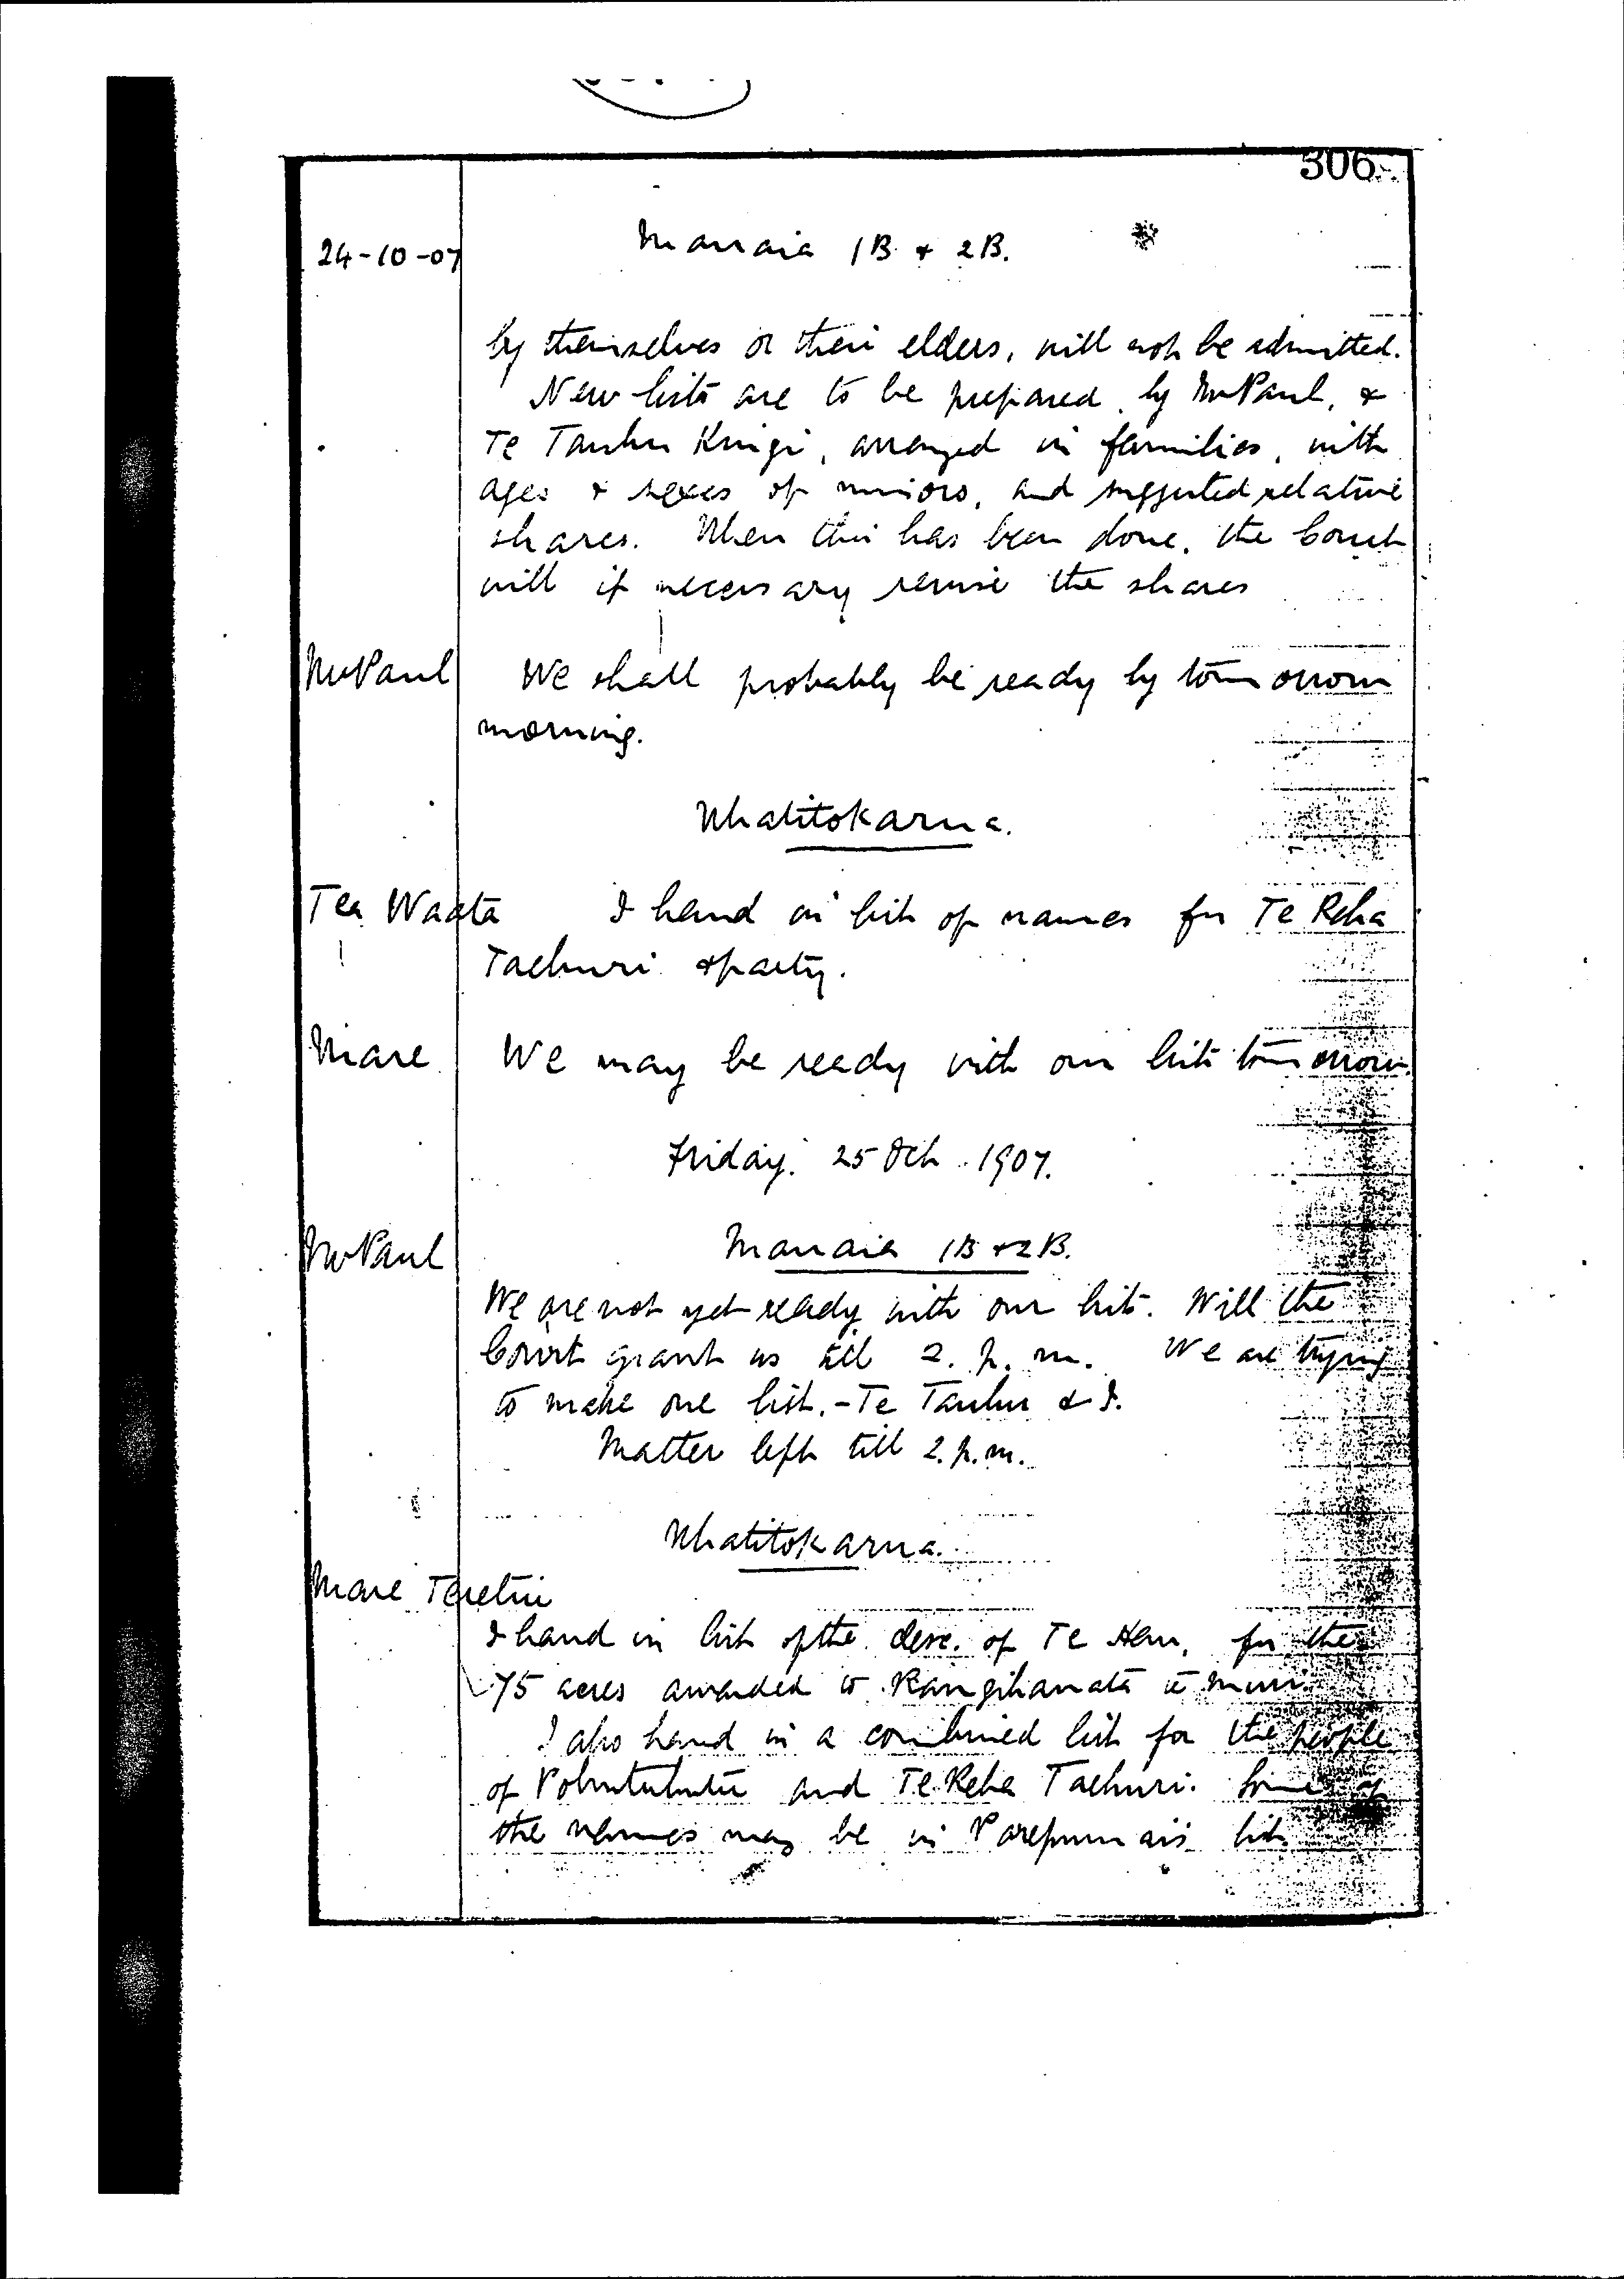 306
24-10-07
Manaia 1B & 2B.
by themselves or their elders, will not be admitted.
New lists are to be prepared by Mr Paul, &
Te Tauhu Kingi, arranged in families, with
ages & sexes of minors, and suggested relative
shares. When this has been done, the Court
will if necessary revise the shares
Mr Paul We shall probably be ready by tomorrow
morning.
Whatitokarua.
Tea Waata I hand in list of names for Te Reha
Taehuri & party.
Mare We may be ready with our lists tomorrow.
Friday. 25 Oct. 1907.
Mr Paul Manaia 1B & 2B.
We are not yet ready with our lists. Will the
Court grant us till 2. p. m. We are trying
to make one list. - Te Tauhu & I.
Matter left till 2. p. m.
Whatitokarua.
Mare Teretiu
I hand in list of the desc. of Te for the
75 acres awarded to Rangihanata te Muri.
I also hand in a combined list for the people
of Pohutuhutu and Te Reha Taehuri. Some of
the names may be in Parepumai's list.